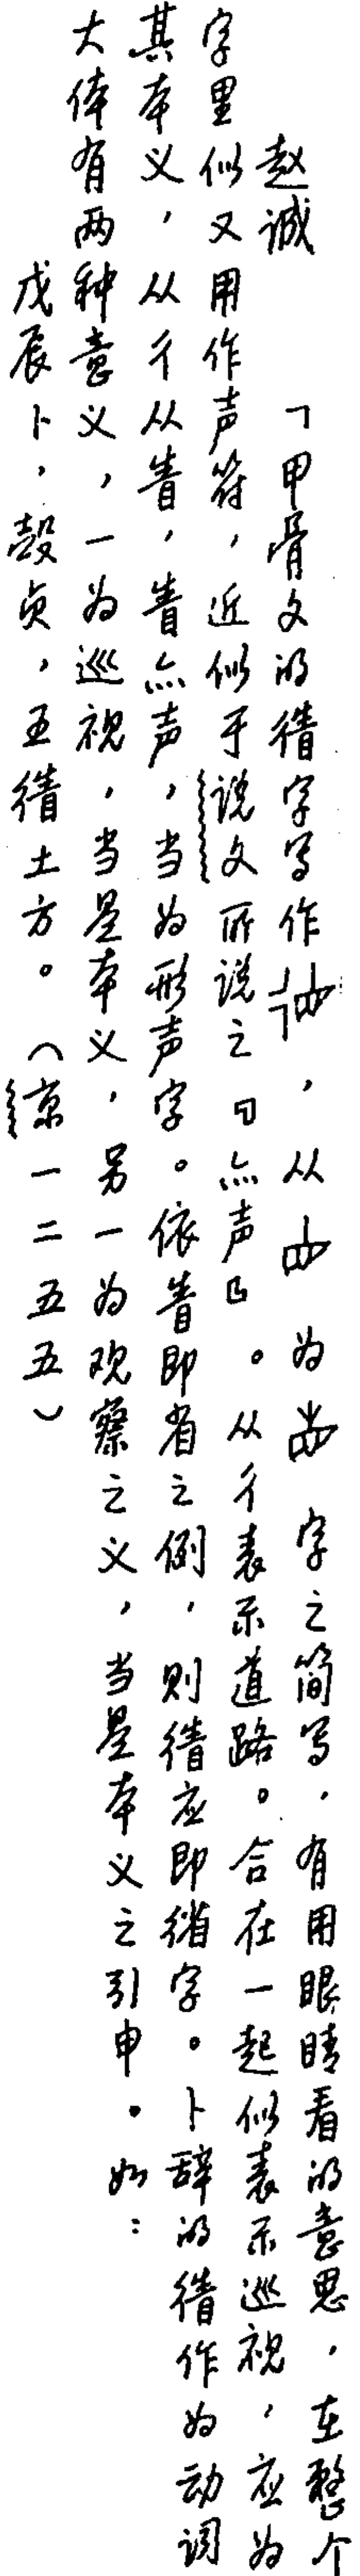 赵诚　「甲骨文的⿰彳眚字写作，从为字之简写，有用眼睛看的意思，在整个
字里似又用作声符，近似于说文所说之『亦声』。从彳表示道路。合在一起似表示巡视，应为
其本义，从彳从眚，眚亦声，当为形声字。依眚即省之例，则⿰彳眚应即⿰彳省字。卜辞的⿰彳眚作为动词
大体有两种意义，一为巡视，当是本义，另一为观察之义，当是本义之引申。如：
戊辰卜，㱿贞，王⿰彳眚土方。（京一二五五）